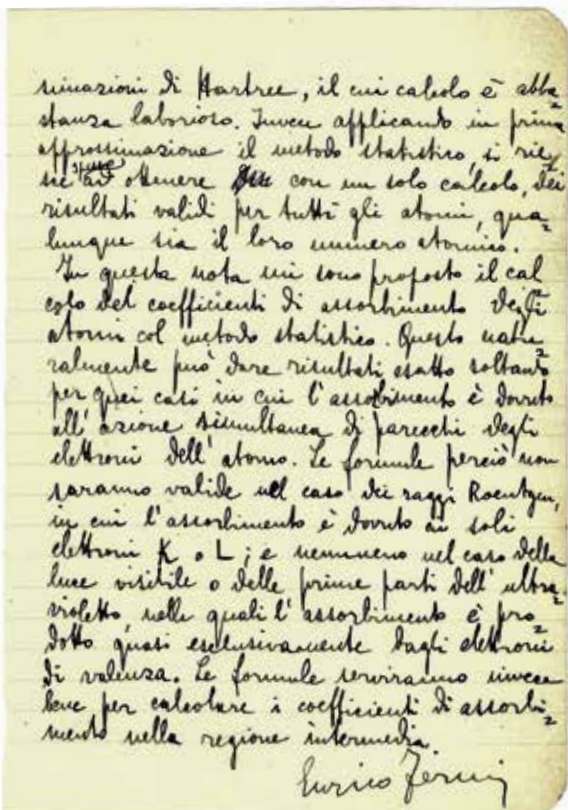 simazioni di Hartree, il cui calcolo è abba=
stanza laborioso. Invece applicando in prima
approssimazione il metodo statistico, si rie=
sce spesso ad ottenere con un solo calcolo, dei
risultati validi per tutti gli atomi, qua=
lunque sia il loro numero atomico.
In questa nota mi sono proposto il cal
colo del coefficienti di assorbimento degli
atomi col metodo statistico. Questo natu=
ralmente può dare risultati esatto soltanto
per quei casi in cui l'assorbimento è dovuto
all'azione simultanea di parecchi degli
elettroni dell'atomo. Le formule perciò non
saranno valide nel caso dei raggi Roentgen,
in cui l'assorbimento è dovuto ai soli
elettroni K o L; e nemmeno nel caso della
luce visibile o delle prime parti dell'ultra=
violetto, nelle quali l'assorbimento è pro=
dotto quasi esclusivamente dagli elettroni
di valenza. Le formule serviranno invece
bene per calcolare i coefficienti di assorbi=
mento nella regione intermedia.
Enrico Fermi